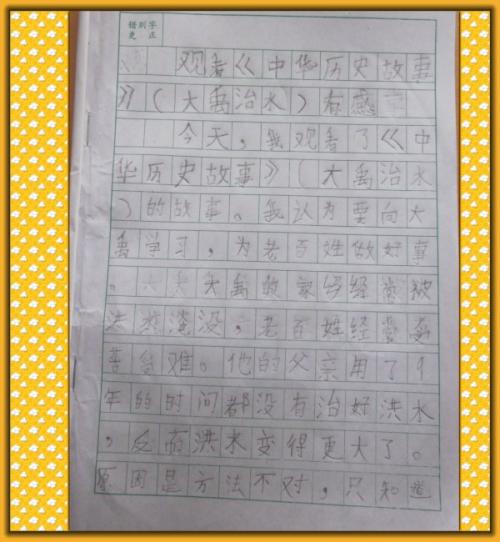 错别字
更正
观看《中华历史故事
》(大禹治水)有感
今天,我观看了《中
华历史故事》(大禹治水
)的故事。我认为要向大
禹学习,为老百姓做好事
。大禹的家乡经常被
洪水淹没,老百姓经常受
苦受难。他的父亲用了9
年的时间都没有治好洪水
,反而洪水变得更大了。
原因是方法不对,只知道